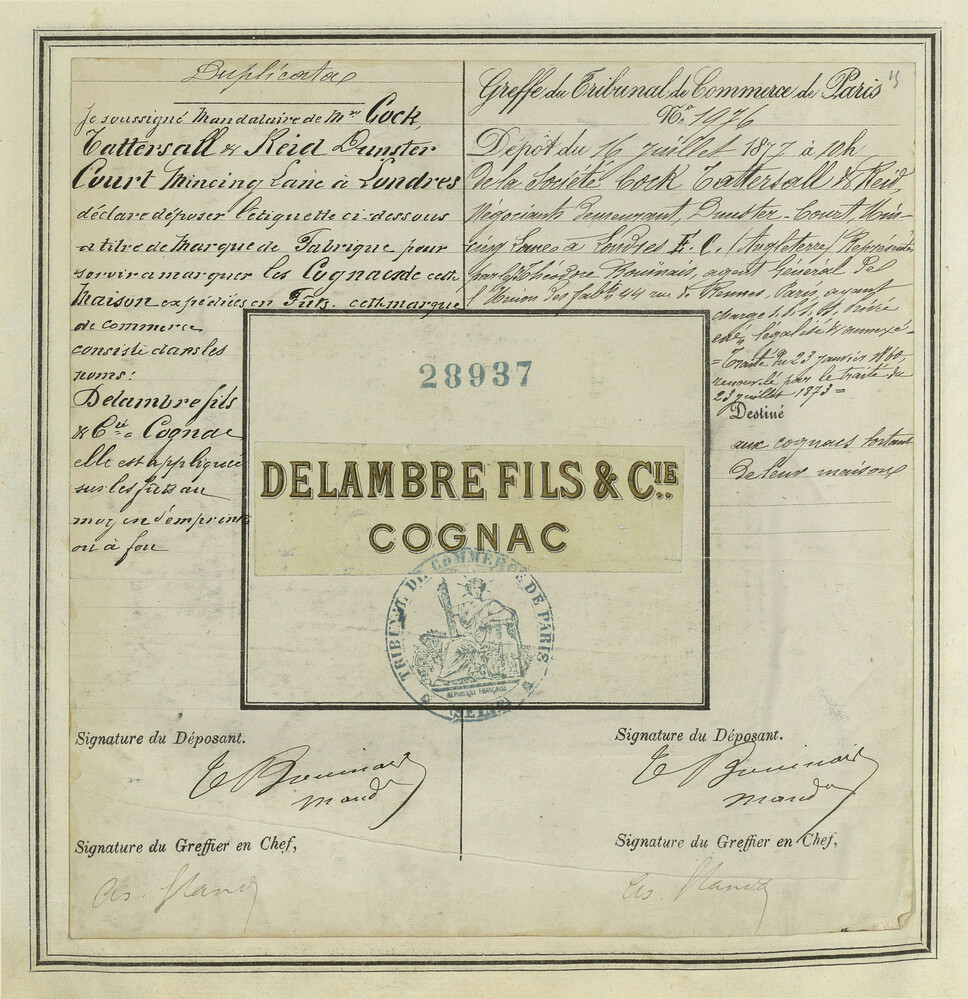 Duplicata
Je soussigné Mandataire de Mrs Cock,
Tattersall & Reid Dunster
Court Mincing Lane à Londres
déclare déposer l'étiquette ci-dessous
à titre de Marque de Fabrique pour
servir à marquer les Cognacs de cette
Maison expédiés en Fûts. cette marque
de commerce
consiste dans les
noms:
Delambre fils
& Cie Cognac
elle est appliquée
sur les fûts au
moyen d'empreinte
ou à feu
Greffe du Tribunal de Commerce de Paris
No. 1976
Dépôt du 16 Juillet 1877 à 10h
De la Société Cock Tattersall & Reid,
Négociants demeurant, Dunster-Court, Min-
cing Lane à Londres E. C. (Angleterre) Représentée
par Théodore Bouinais, agent Général de
l'Union des Fabts 44 rue de Rennes, Paris, ayant
charge
légalisé & annexé
= Traité du 23 janvier 1860,
renouvelé par le traité du
23 juillet 1873 =
Destiné
aux cognacs sortant
de leur maison
28937
DELAMBRE FILS & CIE
COGNAC
TRIBUNAL DE COMMERCE DE PARIS
REPUBLIQUE FRANÇAISE
(SEINE)
Signature du Déposant.
Signature du Déposant.
T Bouinais
mand
T Bouinais
mand
Signature du Greffier en Chef,
Signature du Greffier en Chef,